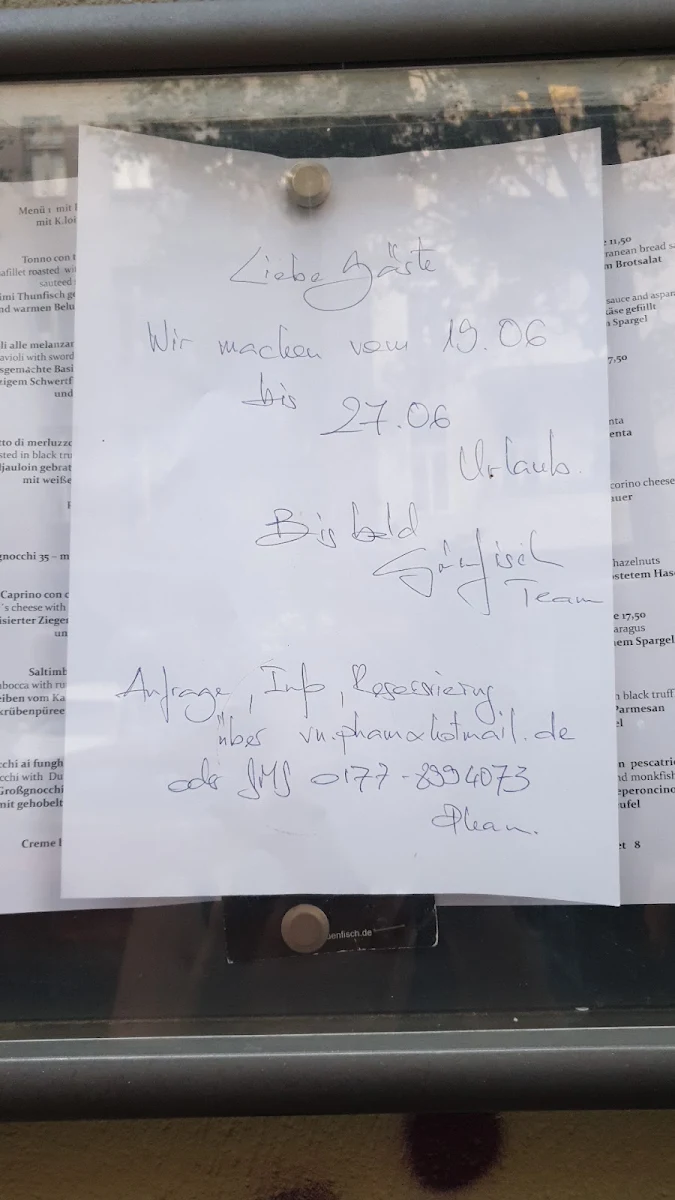 Liebe Gäste
Wir machen vom 19.06
bis 27.06
Urlaub.
Bis bald
Team
Anfrage, Info, Reservierung
über vn.pham@hotmail.de
oder SMS 0177-8994073
Pham.
enfisch.de
Menü 1 mit
mit K.loi
Tonno con
afillet roasted wi
sauteed
imi Thunfisch ge
nd warmen Belu
li alle melanzan
avioli with sword
sgemachte Basi
zigem Schwertf
und
to di merluzzo
sted in black tru
ljauloin gebrat
mit weiße
gnocchi 35 – m
Caprino con
's cheese with
isierter Ziege
un
Saltimb
bocca with ru
eiben vom Ka
krübenpüree
cchi ai fungh
cchi with Du
Großgnocchi
mit gehobelt
Creme
11,50
ranean bread sa
m Brotsalat
sauce and aspar
käse gefüllt
n Spargel
7,50
nta
enta
corino cheese
auer
hazelnuts
stetem Has
e 17,50
aragus
em Spargel
black truff
Parmesan
el
n pescatri
nd monkfish
eperoncino
ufel
et 8